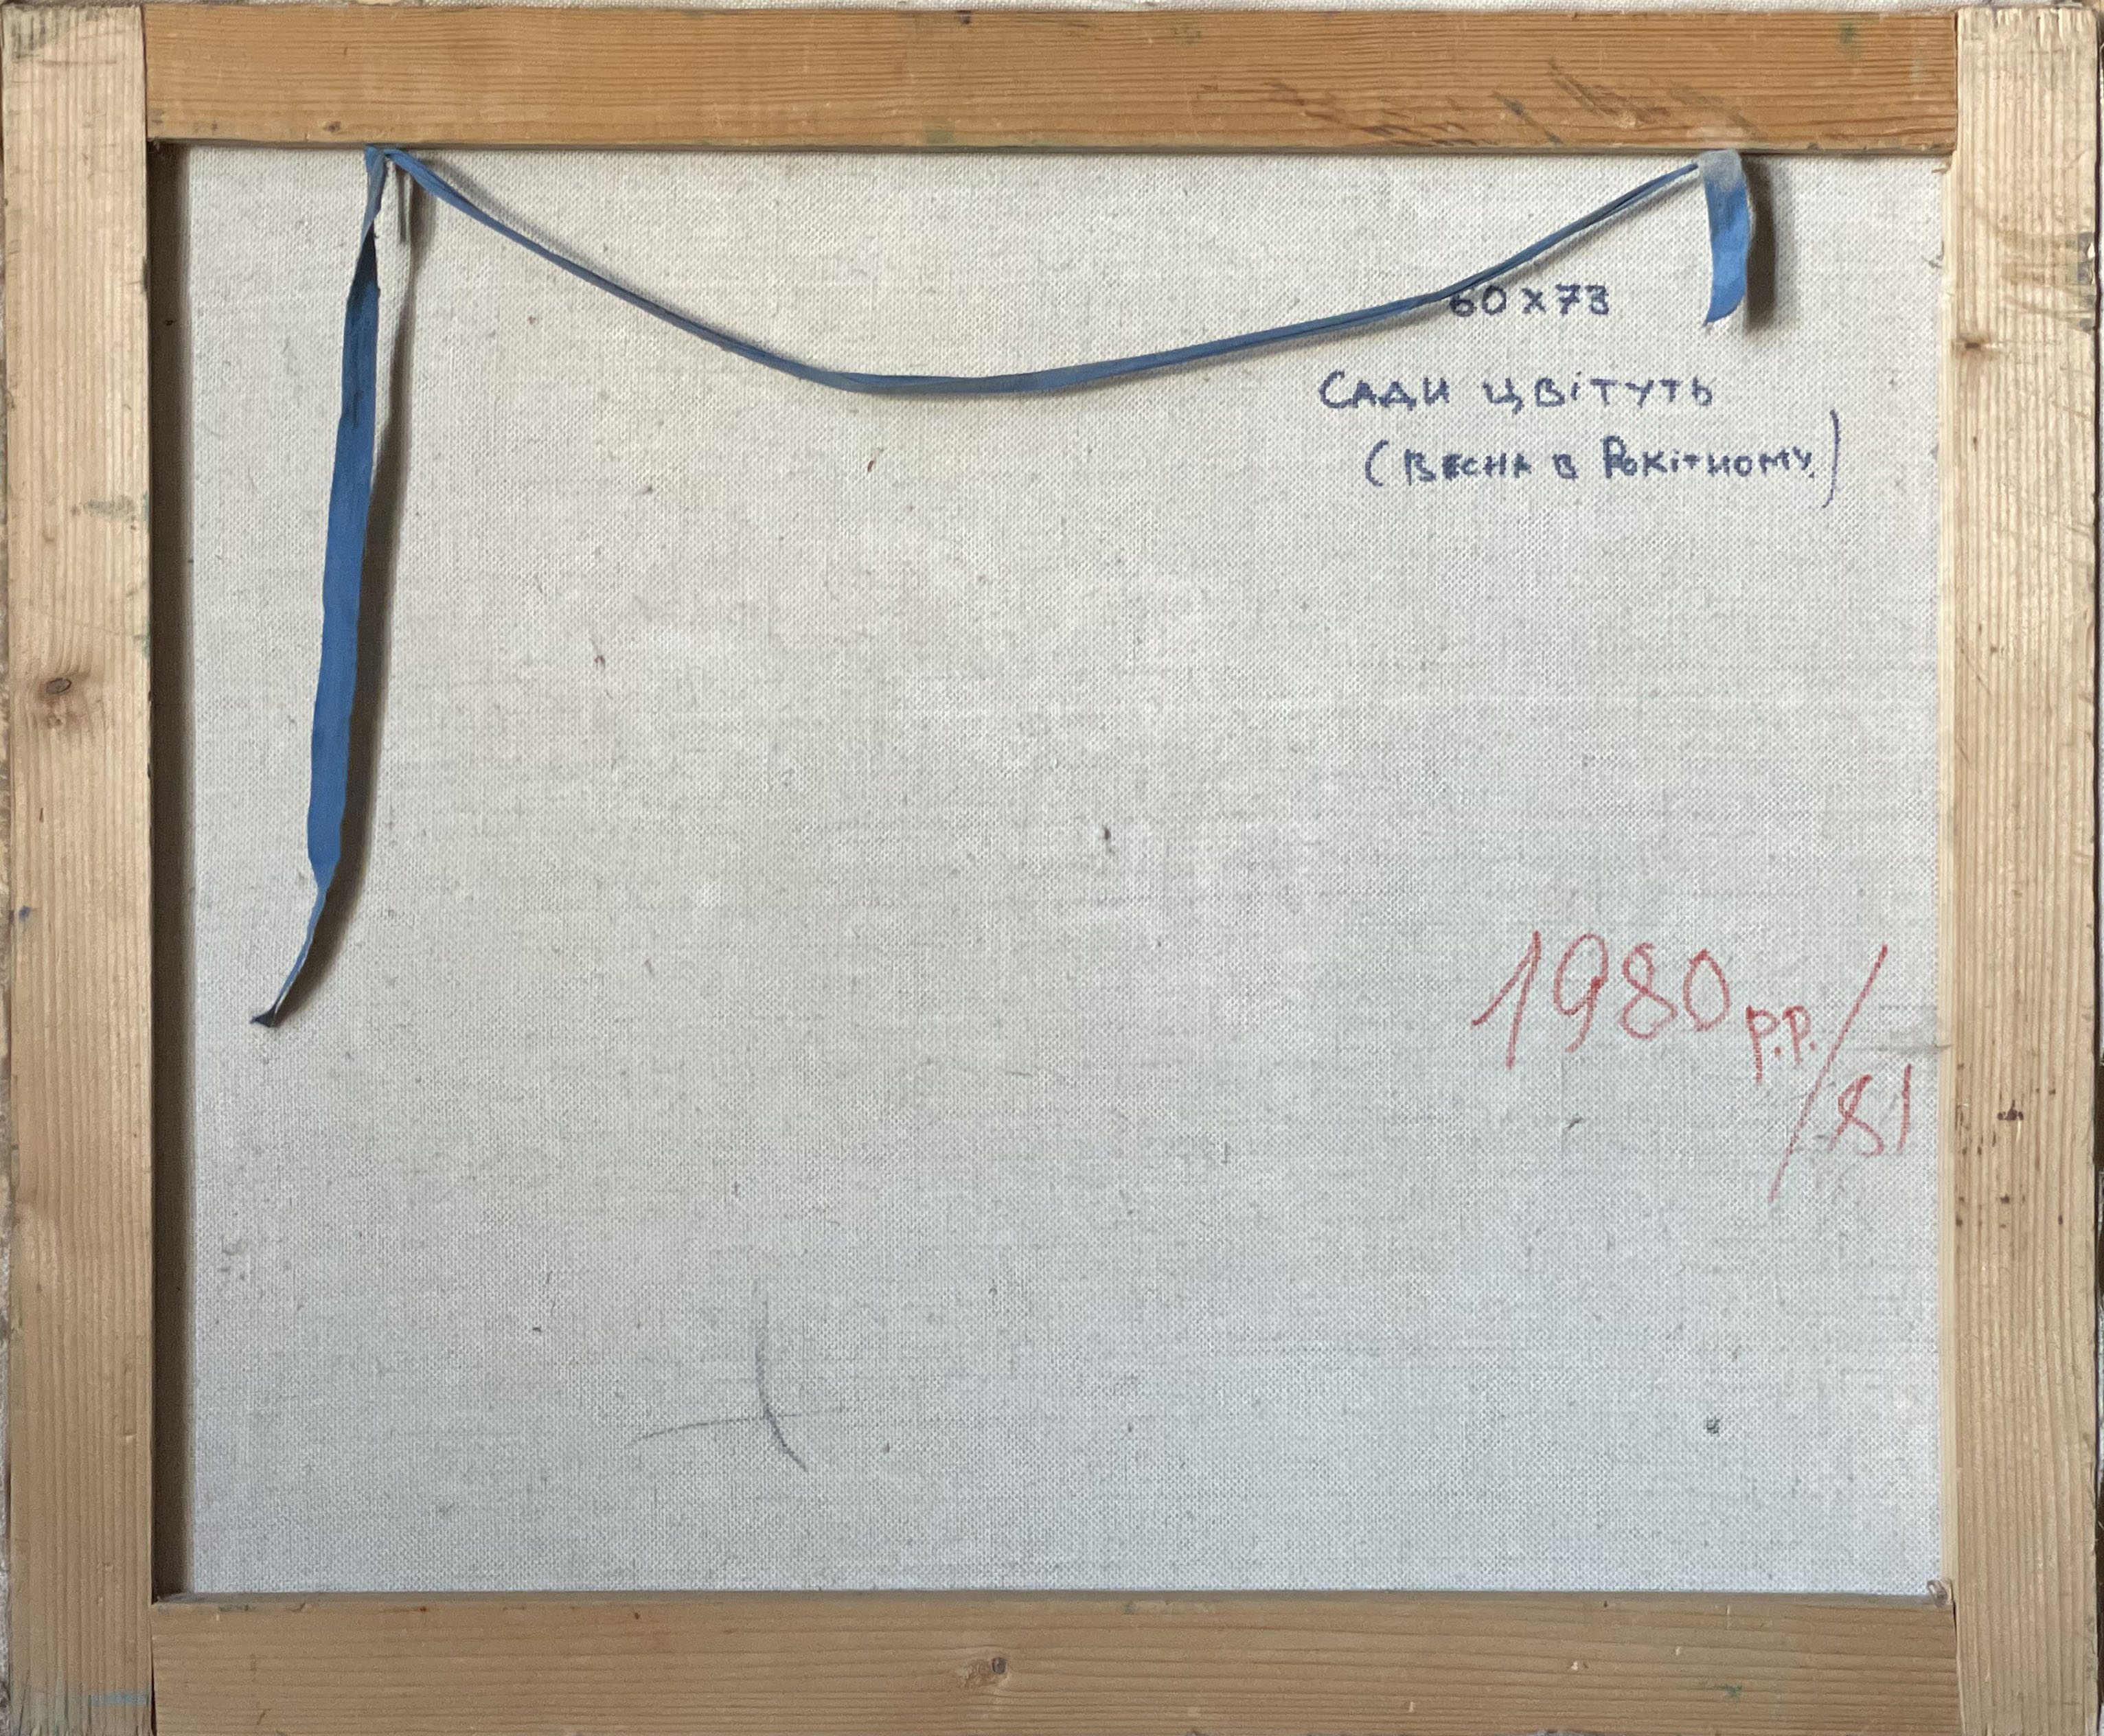 60x73
Сади цвітуть
(Весна в Рокітному)
1980 р.р./81